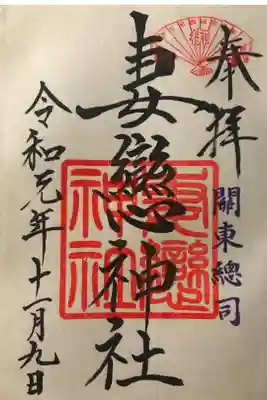 奉拝
關東總司
妻戀神社
令和元年十一月九日
妻戀
神社